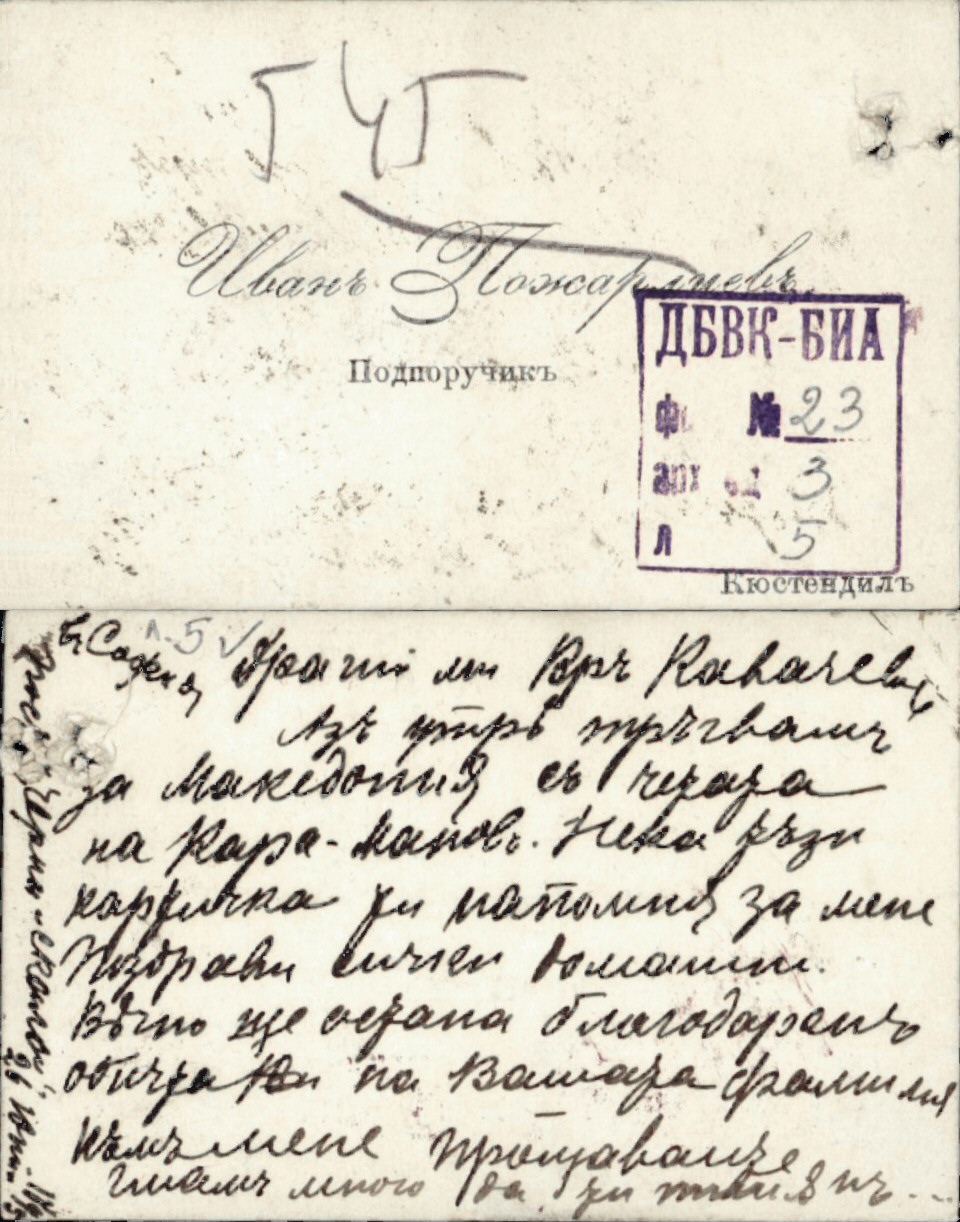 545
Иванъ Пожарлиевъ.
Подпоручикъ
ДБВК-БИА
№ 23
арх ед 3
л 5
Кюстендилъ
въ София
л. 5
Драгий ми Кръ Ковачевъ
Азъ утрѣ тръгвамъ
за Македония съ четата
на Кара-Мановъ. Нека тъзи
картичка ти напомня за мене
Поздрави сички домашни.
Вѣчно ще остана благодаренъ
обичта на Вашата фамилия
къмъ мене прощавайте
имамъ много да ти
26 Юний